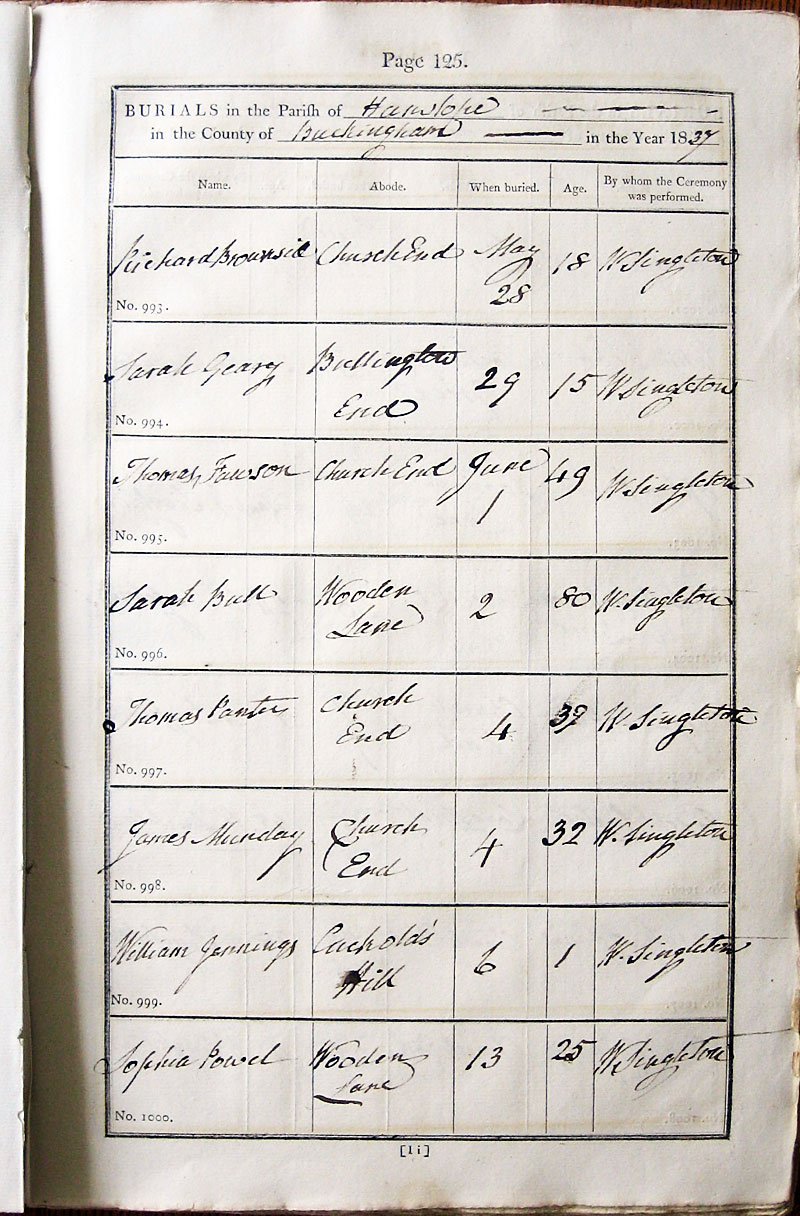 Page 125.
BURIALS in the Parish of Hanslope
in the County of Buckingham in the Year 1837
Name. Abode. When buried. Age. By whom the Ceremony was performed.
Richard Brownsill Church End May 28 18 W Singleton
No. 993.
Sarah Geary Bullington End 29 15 W Singleton
No. 994.
Thomas Fawson Church End June 1 49 W Singleton
No. 995.
Sarah Bull Wooden Lane 2 80 W. Singleton
No. 996.
Thomas Panter Church End 4 39 W. Singleton
No. 997.
James Munday Church End 4 32 W. Singleton
No. 998.
William Jennings Cuckold's Hill 6 1 W. Singleton
No. 999.
Sophia Powel Wooden Lane 13 25 W. Singleton
No. 1000.
[I i]